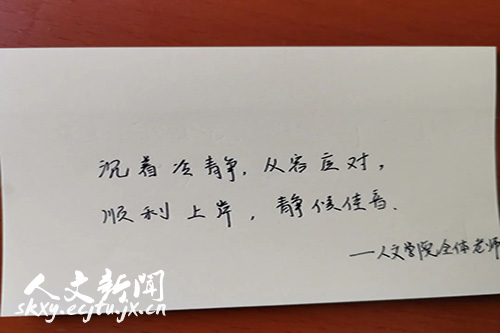 沉着冷静，从容应对，
顺利上岸，静候佳音.
——人文学院全体老师
人文新闻
skxy.ecjtu.jx.cn